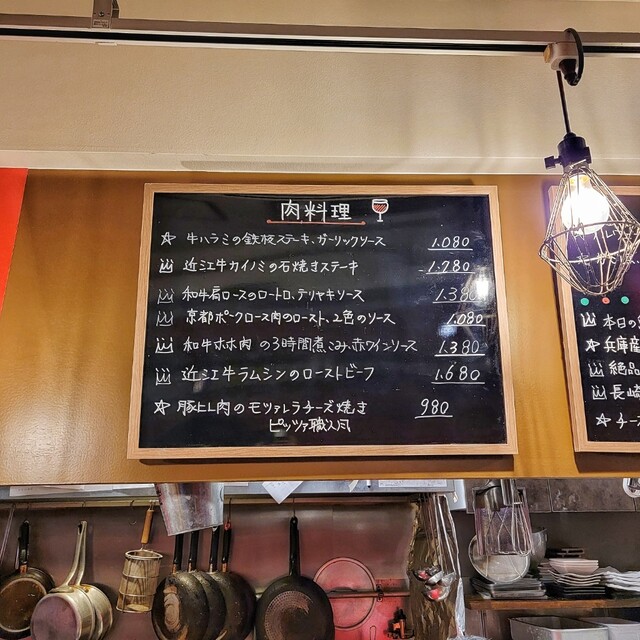 肉料理
牛ハラミの鉄板ステーキ、ガーリックソース 1.080
近江牛カイノミの石焼きステーキ 1.780
和牛肩ロースのロートロ、テリヤキソース 1.380
京都ポークロース肉のロースト、2色のソース 1.080
和牛ホホ肉の3時間煮こみ、赤ワインソース 1.380
近江牛ラムシンのローストビーフ 1.680
豚ヒレ肉のモッツァレラチーズ焼き 980
ピッツァ職人風
本日の
兵庫産
絶品
長崎
チー